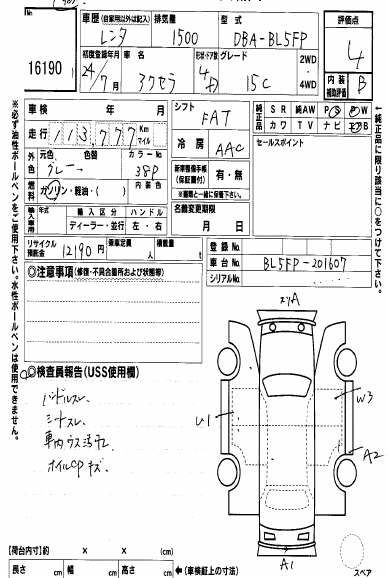 No.
16190
車歴 (自家用以外は記入)
レンタ
排気量
1500
型式
DBA-BL5FP
評価点
4
初度登録年月
24/7月
車名
アクセラ
形状・ドア数
4D
グレード
15C
2WD
4WD
内装補助評価
B
車検 年 月
シフト
FAT
純正品
SR 純AW PS PW
カワ TV ナビ エアB
走行 113,777 Km マイル
冷房
AAC
セールスポイント
外色 元色 色替 カラーNo.
グレー
38P
燃料
ガソリン・軽油・( )
内装色
新車整備手帳(保証書付)
有・無
※書類と一緒に保管して下さい。
輸入車用 年式 輸入区分 ハンドル
ディーラー・並行 左・右
名義変更期限
月 日
リサイクル預託金
12190 円
乗車定員 人
積載量 t
登録No.
車台No. BL5FP-201607
シリアルNo.
◎注意事項 (修復・不具合箇所および状態等)
◎検査員報告 (USS使用欄)
ハンドルスレ
シートスレ
車内ウス汚レ
ホイルCPキズ
A
U1
W3
A2
A1
スペア
【荷台内寸】約 × × (cm)
長さ cm 幅 cm 高さ cm ←(車検証上の寸法)
※必ず油性ボールペンをご使用下さい。水性ボールペンは使用できません。
←純正品に限り該当に○をつけて下さい。